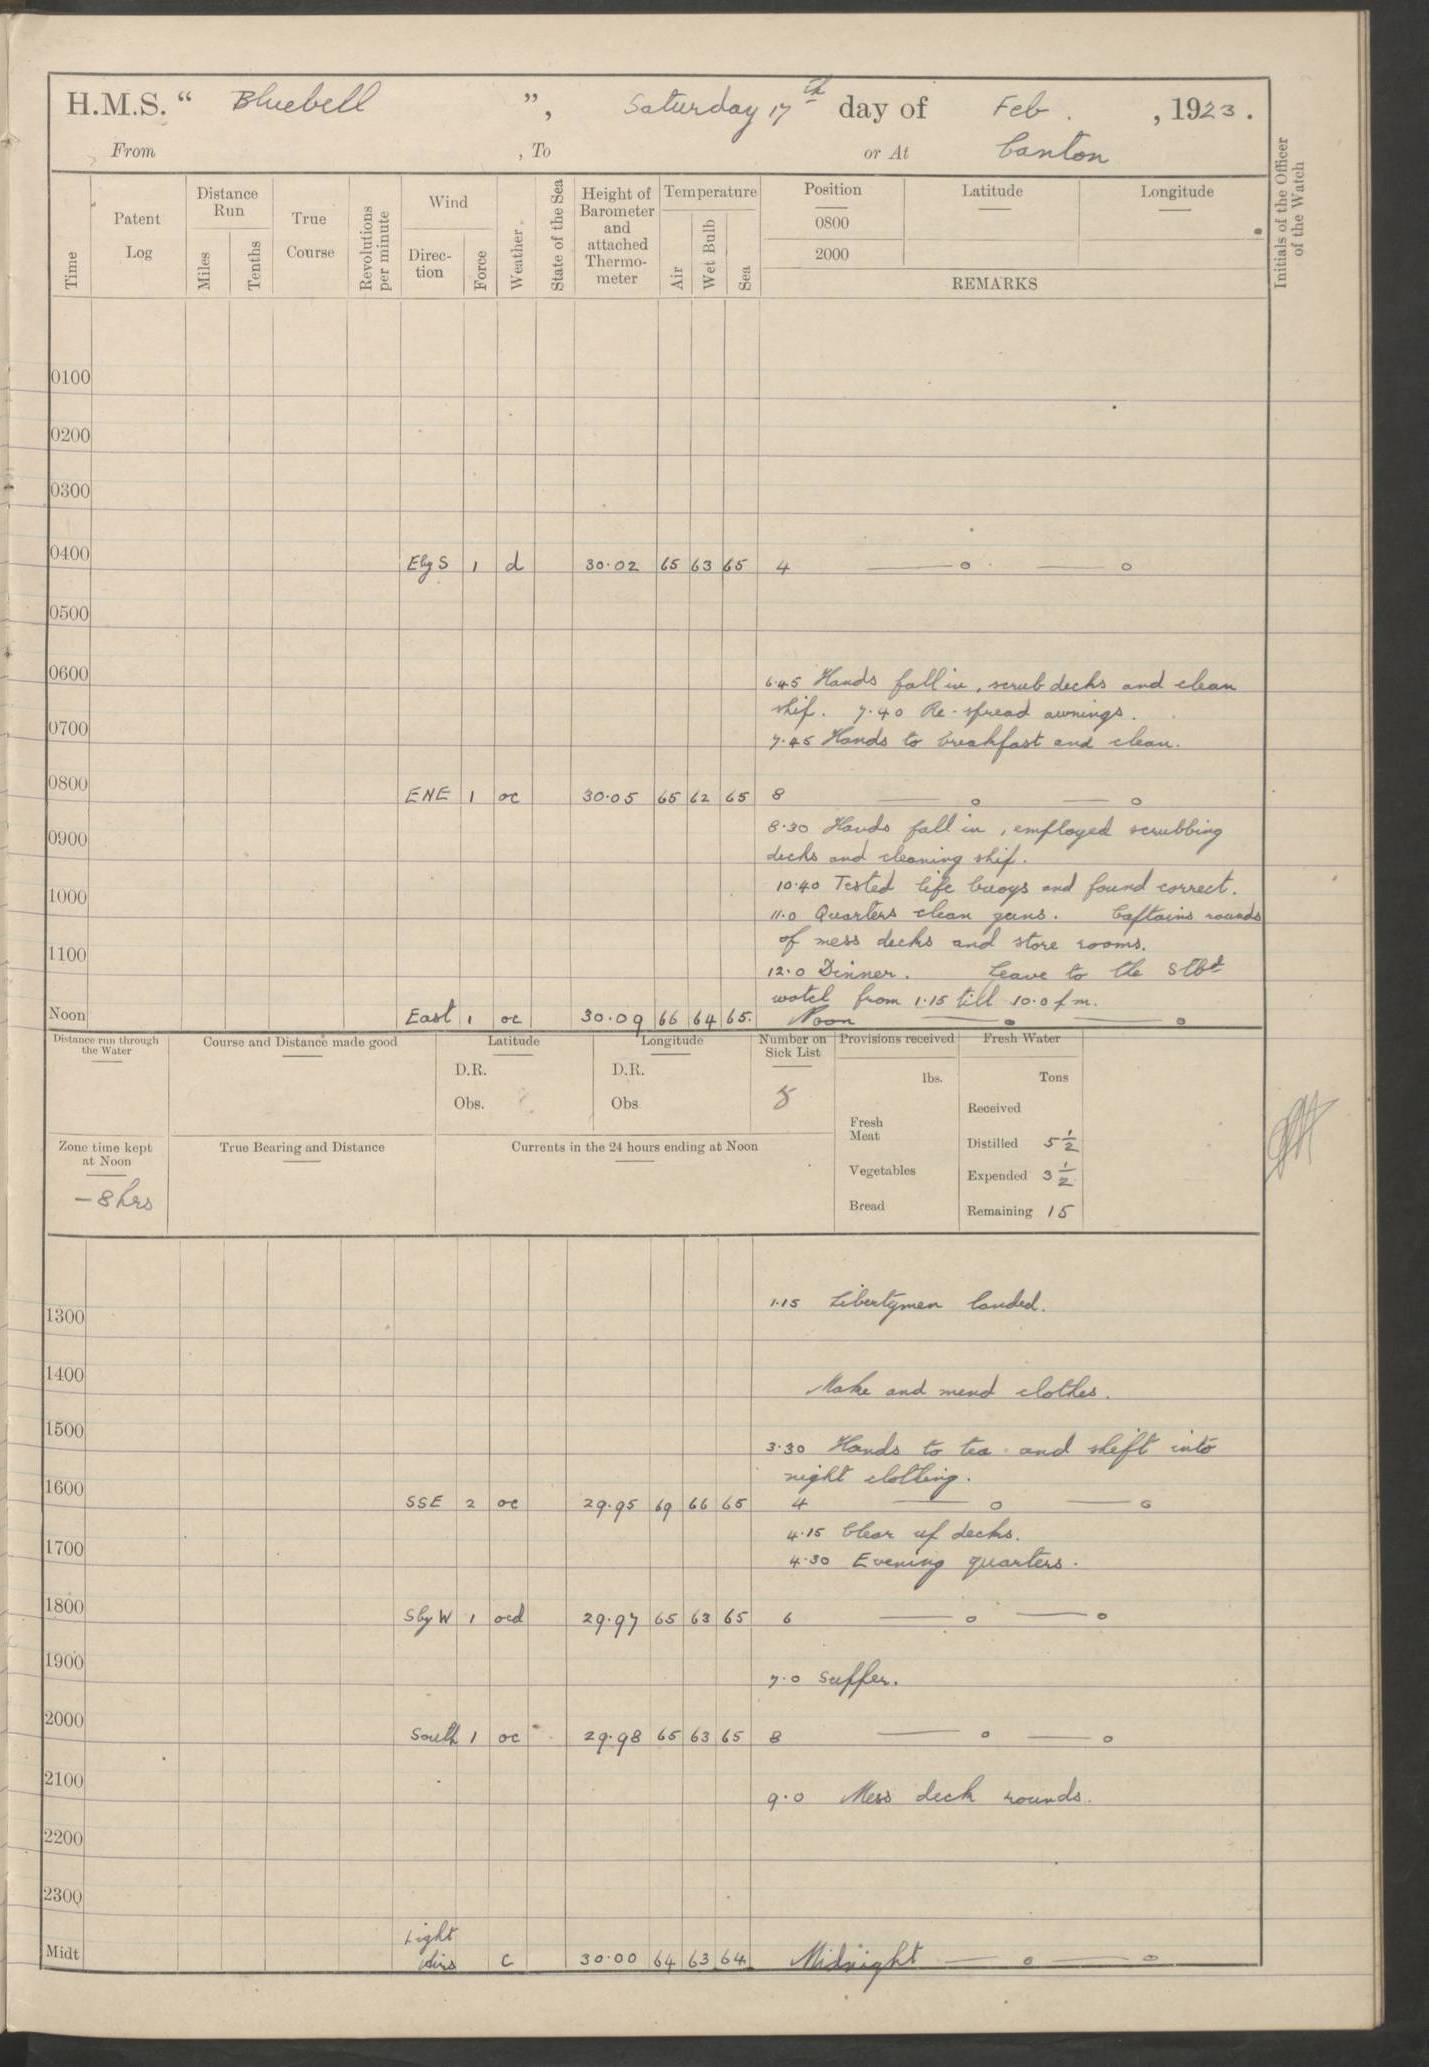 H.M.S. “ Bluebell ”, Saturday 17th day of Feb. , 1923.
From , To or At Canton
Time
Patent Log
Distance Run
Miles
Tenths
True Course
Revolutions per minute
Wind
Direc-tion
Force
Weather
State of the Sea
Height of Barometer and attached Thermo-meter
Temperature
Air
Wet Bulb
Sea
Position Latitude Longitude
0800
2000
REMARKS
Initials of the Officer of the Watch
0100
0200
0300
0400 E by S 1 d 30.02 65 63 65 4 — o — o
0500
0600
6.45 Hands fall in, scrub decks and clean
ship. 7.40 Re-spread awnings.
0700
7.45 Hands to breakfast and clean.
0800 ENE 1 oc 30.05 65 62 65 8 — o — o
8.30 Hands fall in, employed scrubbing
0900
decks and cleaning ship.
10.40 Tested life buoys and found correct.
1000
11.0 Quarters clean guns. Captains rounds
of mess decks and store rooms.
1100
12.0 Dinner. Leave to the Stbd
watch from 1.15 till 10.0 p.m.
Noon East 1 oc 30.09 66 64 65. Noon — o — o
Distance run through the Water
Course and Distance made good
Latitude
D.R.
Obs.
Longitude
D.R.
Obs
Number on Sick List
8
Provisions received
lbs.
Fresh Meat
Vegetables
Bread
Fresh Water
Tons
Received
Distilled 5 1/2
Expended 3 1/2
Remaining 15
Zone time kept at Noon
- 8 hrs
True Bearing and Distance
Currents in the 24 hours ending at Noon
1.15 Libertymen landed.
1300
1400
Make and mend clothes.
1500
3.30 Hands to tea and shift into
night clothing.
1600 SSE 2 oc 29.95 69 66 65 4 — o — o
4.15 Clear up decks.
1700
4.30 Evening quarters.
1800 S by W 1 ocd 29.97 65 63 65 6 — o — o
1900
7.0 Supper.
2000 South 1 oc 29.98 65 63 65 8 — o — o
2100
9.0 Mess deck rounds.
2200
2300
Midt Light Airs c 30.00 64 63 64 Midnight — o — o